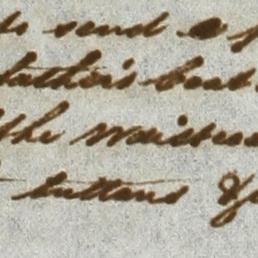 to send a
father's boat
the waistcoat
buttons &